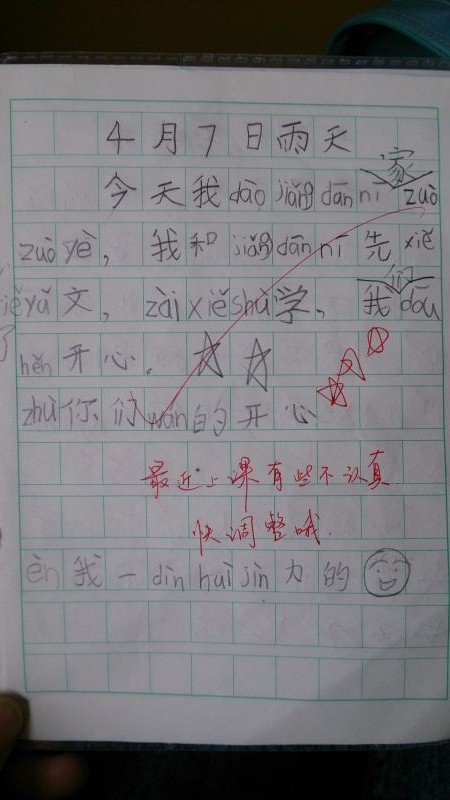 4月7日雨天
今天我dāo jiǎng dān nī家zuò
zuò yè，我和jiǎng dān nī先xiě
iě yǔ文，zài xiě shù学，我们dōu
hěn开心。☆☆
zhù你们wán的开心
最近上课有些不认真
快调整哦.
èn我一dìn huì jìn力的